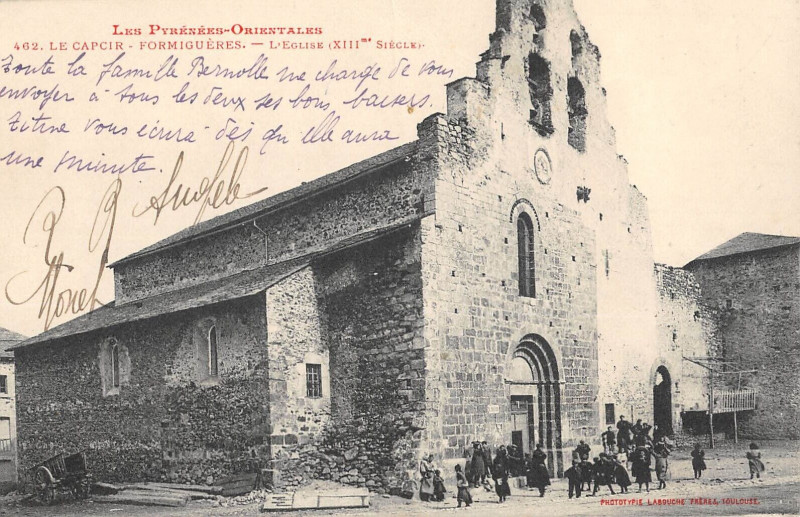 LES PYRÉNÉES-ORIENTALES
462. LE CAPCIR - FORMIGUÈRES. — L'EGLISE (XIIIme SIÈCLE).
Toute la famille Bernolle me charge de vous
envoyer à tous les deux ses bons baisers.
Titine vous écrira dès qu'elle aura
une minute.
Angèle
PHOTOTYPIE LABOUCHE FRÈRES, TOULOUSE.